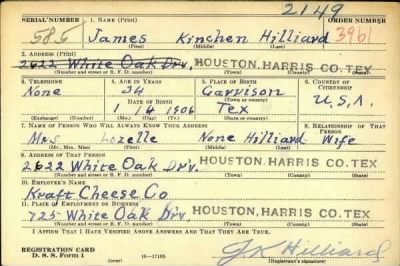 2149
SERIAL NUMBER 1. NAME (Print) ORDER NUMBER
585 James Kinchen Hilliard 3961
(First) (Middle) (Last)
2. ADDRESS (Print)
2622 White Oak Drv. HOUSTON, HARRIS CO. TEX
(Number and street or R. F. D. number) (Town) (County) (State)
3. TELEPHONE 4. AGE IN YEARS 5. PLACE OF BIRTH 6. COUNTRY OF CITIZENSHIP
None 34 Garrison
DATE OF BIRTH (Town or county)
1 4 1906 Tex U.S.A.
(Exchange) (No.) (Mo.) (Day) (Yr.) (State or country)
7. NAME OF PERSON WHO WILL ALWAYS KNOW YOUR ADDRESS 8. RELATIONSHIP OF THAT PERSON
Mrs Lozelle None Hilliard Wife
(Mr., Mrs., Miss) (First) (Middle) (Last)
9. ADDRESS OF THAT PERSON
2622 White Oak Drv. HOUSTON, HARRIS CO. TEX
(Number and street or R. F. D. number) (Town) (County) (State)
10. EMPLOYER'S NAME
Kraft Cheese Co
11. PLACE OF EMPLOYMENT OR BUSINESS
725 White Oak Drv HOUSTON, HARRIS CO. TEX
(Number and street or R. F. D. number) (Town) (County) (State)
I AFFIRM THAT I HAVE VERIFIED ABOVE ANSWERS AND THAT THEY ARE TRUE.
REGISTRATION CARD
D. S. S. Form 1 (over) 16—17105 J K Hilliard
(Registrant's signature)